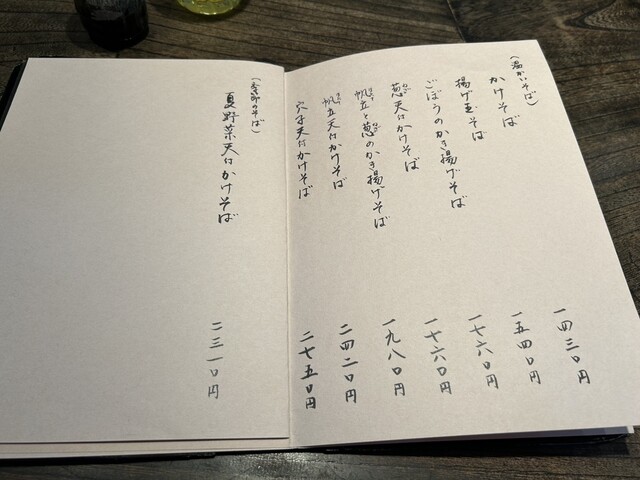 (温かいそば)
かけそば 一四三〇円
揚げ玉そば 一五四〇円
ごぼうのかき揚げそば 一七六〇円
葱天付かけそば 一七六〇円
帆立と葱のかき揚げそば 一九八〇円
帆立天付かけそば 二四二〇円
穴子天付かけそば 二七五〇円
(季節のそば)
夏野菜天付かけそば 二三一〇円